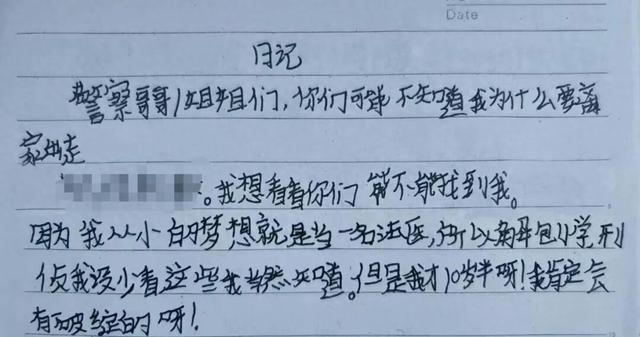 Date
日记
警察哥哥/姐姐们，你们可能不知道我为什么要离
家出走
。我想看看你们能不能找到我。
因为我从小的梦想就是当一名法医，所以解包小学，刑
侦我没少看这些我当然知道。但是我才10岁半呀！我肯定会
有破绽的呀！